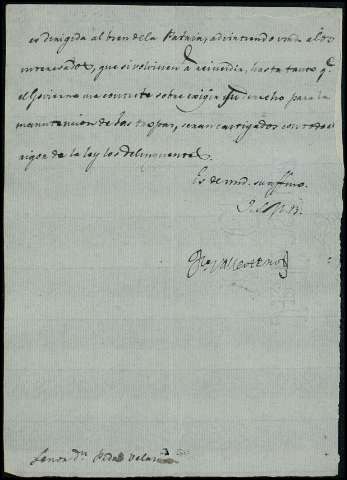 es dirigida al bien dela Patria, advirtiendo vmd alos
interesados, que si vuelven á reincidir, hasta tanto q.e
el Govierno me conteste sobre exigir derecho para la
manutencion de las tropas, seran castigados con todo el
rigor de la ley los delinquentes.
Es de vmd. su affmo.
Q. S. M. B.
Señor Dn. Pedro Velar